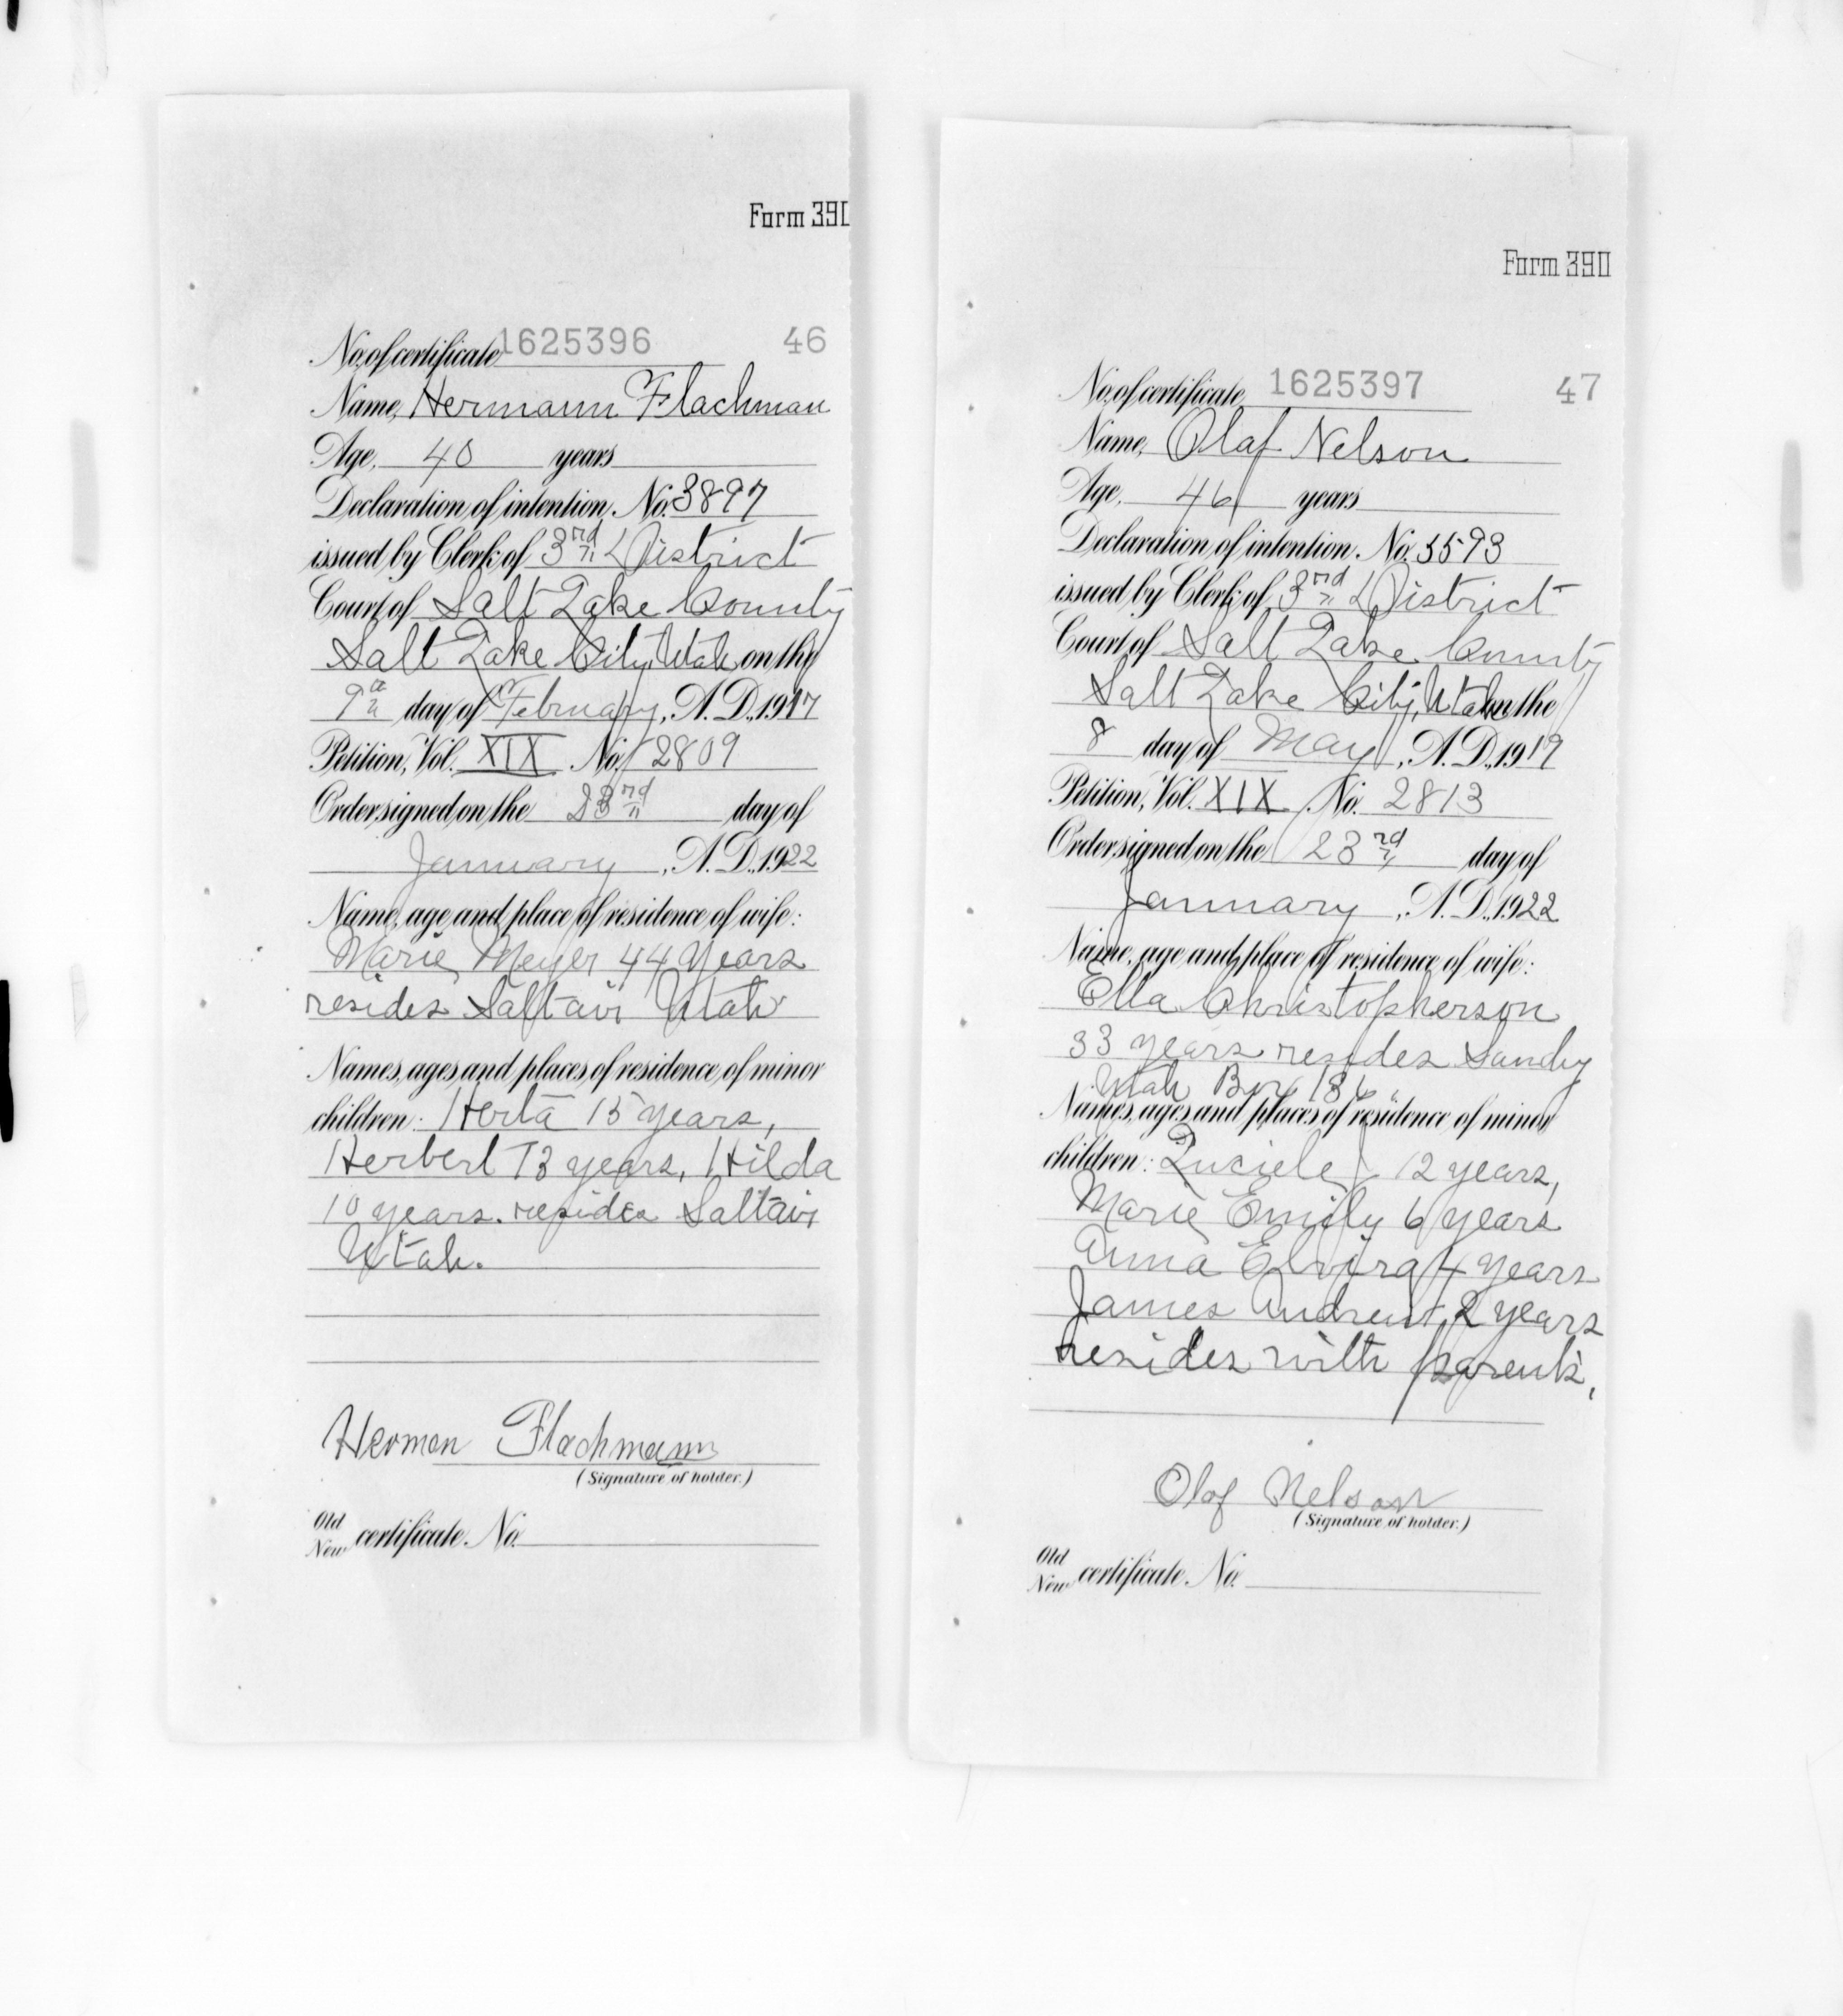 Form 390
No. of certificate 1625396 46
Name, Hermann Flachman
Age, 40 years
Declaration of intention, No. 3897
issued by Clerk of 3rd District
Court of Salt Lake County
Salt Lake City, Utah on the
9th day of February, A. D., 1917
Petition, Vol. XIX No. 2809
Order signed on the 23rd day of
January, A. D., 1922
Name, age and place of residence of wife:
Marie Meyer 44 years
resides Saltair Utah
Names, ages and places of residence of minor
children: Herta 15 years,
Herbert 13 years, Hilda
10 years. resides Saltair
Utah.
Herman Flachmann
(Signature of holder.)
Old
New certificate No.
Form 390
No. of certificate 1625397 47
Name, Olaf Nelson
Age, 46 years
Declaration of intention, No. 5593
issued by Clerk of 3rd District
Court of Salt Lake County
Salt Lake City, Utah on the
8 day of May, A. D., 1919
Petition, Vol. XIX No. 2813
Order signed on the 23rd day of
January, A. D., 1922
Name, age and place of residence of wife:
Ella Christopherson
33 years resides Sandy
Utah Box 186.
Names, ages and places of residence of minor
children: Luciele 12 years,
Marie Emily 6 years
Anna Elvira 4 years
James Andrew 2 years
resides with parents,
Olof Nelson
(Signature of holder.)
Old
New certificate No.